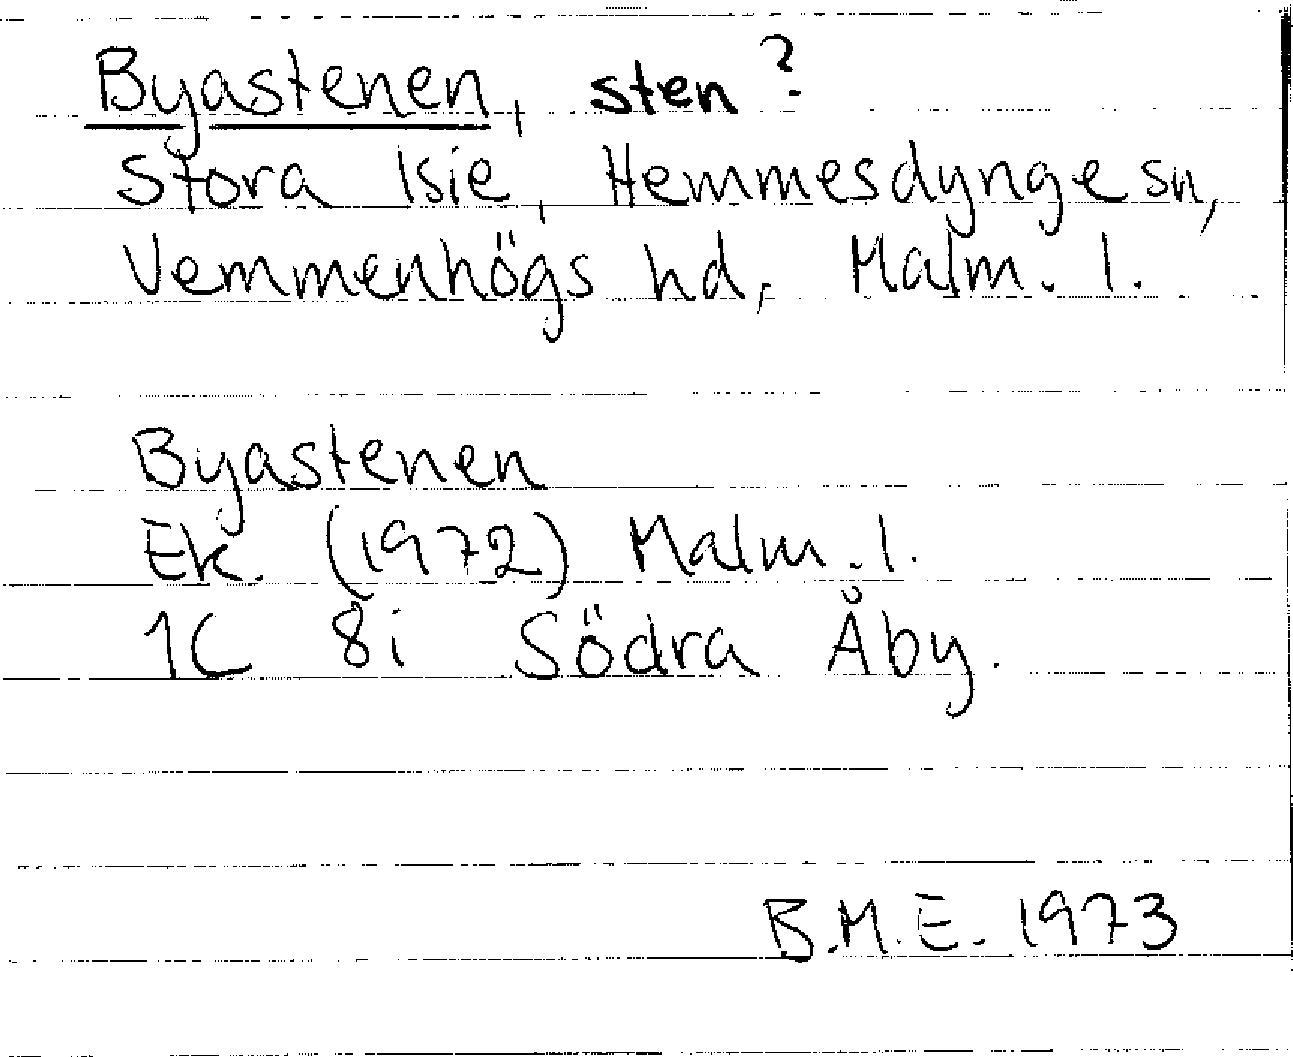 Byastenen, sten?
Stora Isie, Hemmesdynge sn,
Vemmenhögs hd, Malm. l.
Byastenen
Ek. (1972) Malm. l.
1C 8i Södra Åby.
B.M.E. 1973